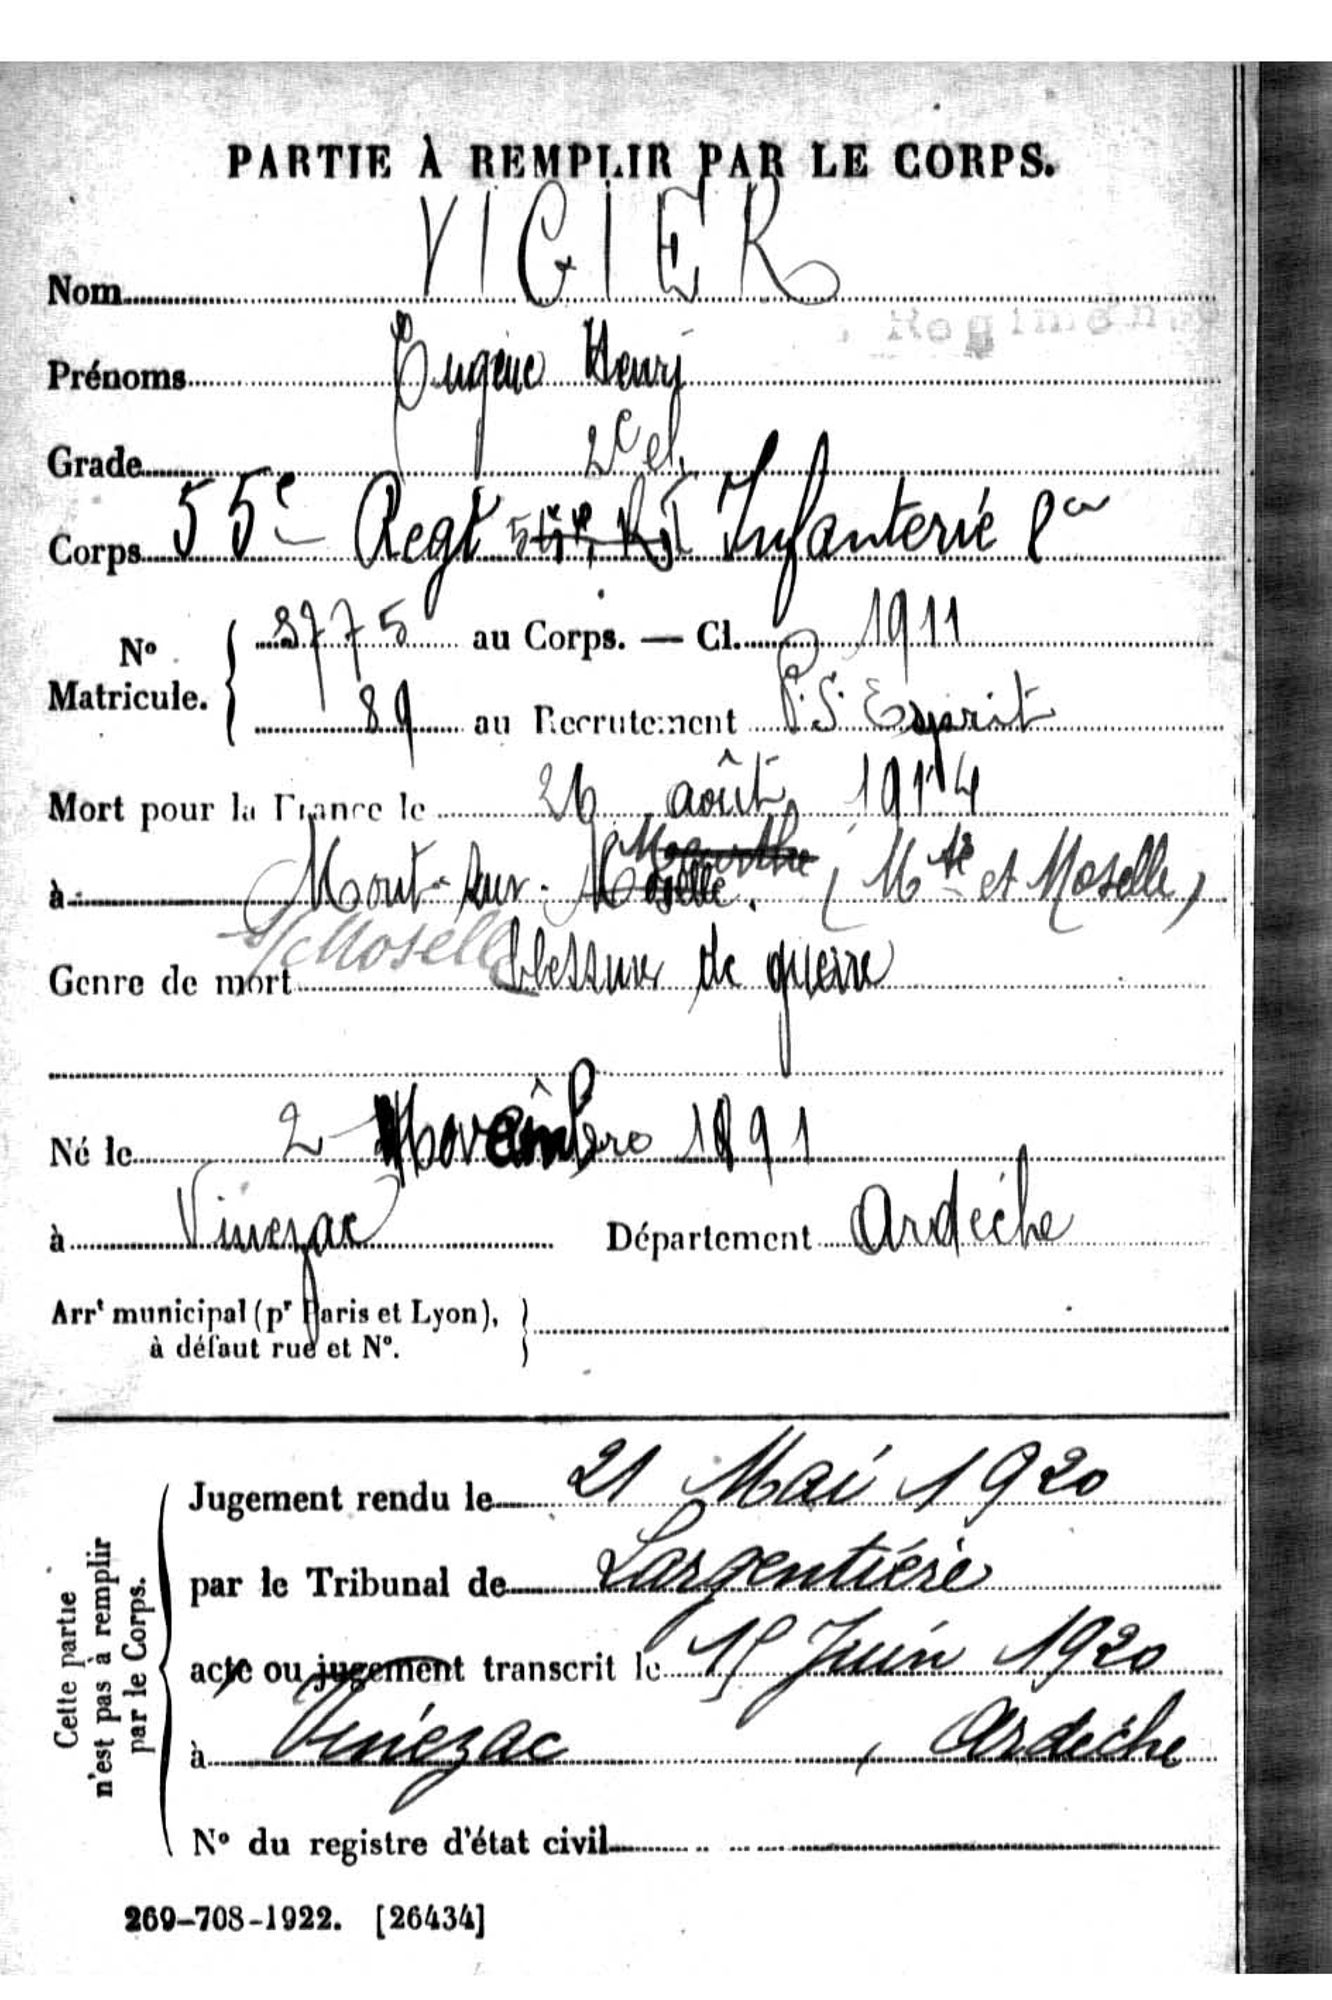 PARTIE À REMPLIR PAR LE CORPS.
Nom VIGIER
Regiment
Prénoms Eugène Henri
Grade 2e cl.
Corps 55e Regt Infanterie
No Matricule. 8775 au Corps. — Cl. 1911
89 au Recrutement P. S. Esprit
Mort pour la France le 26 août 1914
Meurthe
à Mont-sur-Moselle. (Mthe et Moselle)
S/Moselle
Genre de mort blessures de guerre
Né le 2 Novembre 1891
à Vinezac Département Ardèche
Arrt municipal (pr Paris et Lyon),
à défaut rue et No.
Cette partie
n'est pas à remplir
par le Corps.
Jugement rendu le 21 Mai 1920
par le Tribunal de Largentière
acte ou jugement transcrit le 15 Juin 1920
à Viniezac, Ardèche
No du registre d'état civil
269-708-1922. [26434]